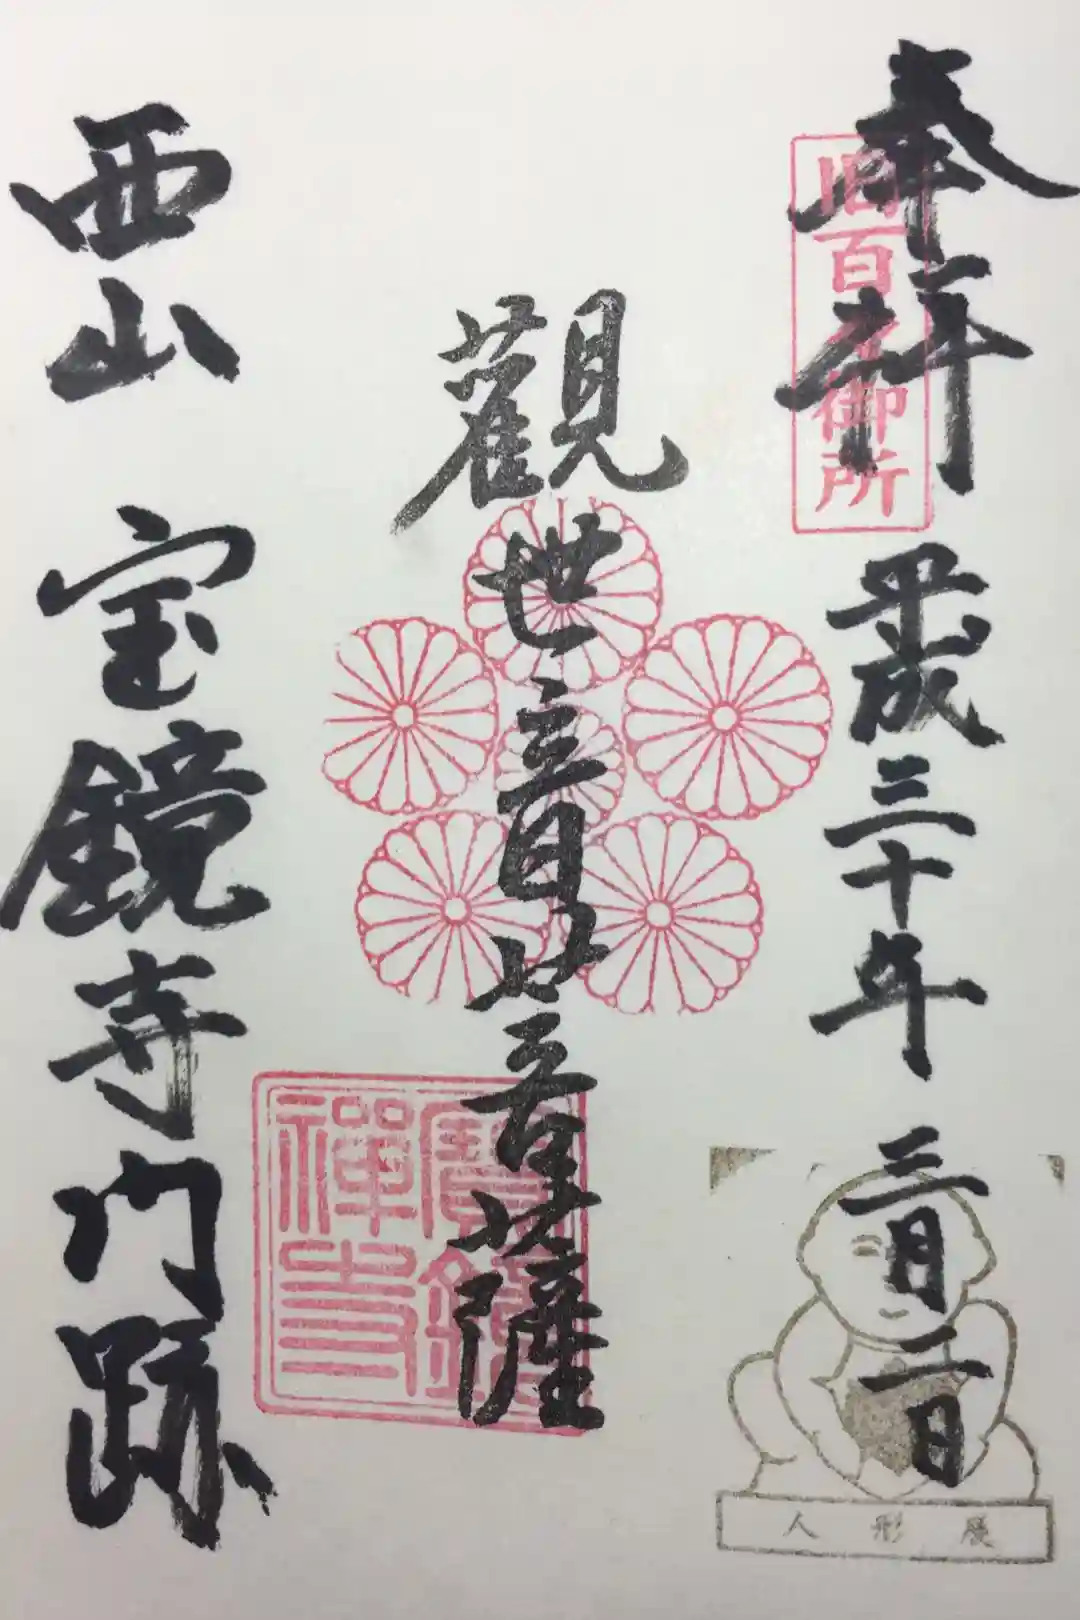 奉拝
旧百々御所
平成三十年
三月二日
觀世音菩薩
寶鏡禅寺
西山
宝鏡寺門跡
人形展